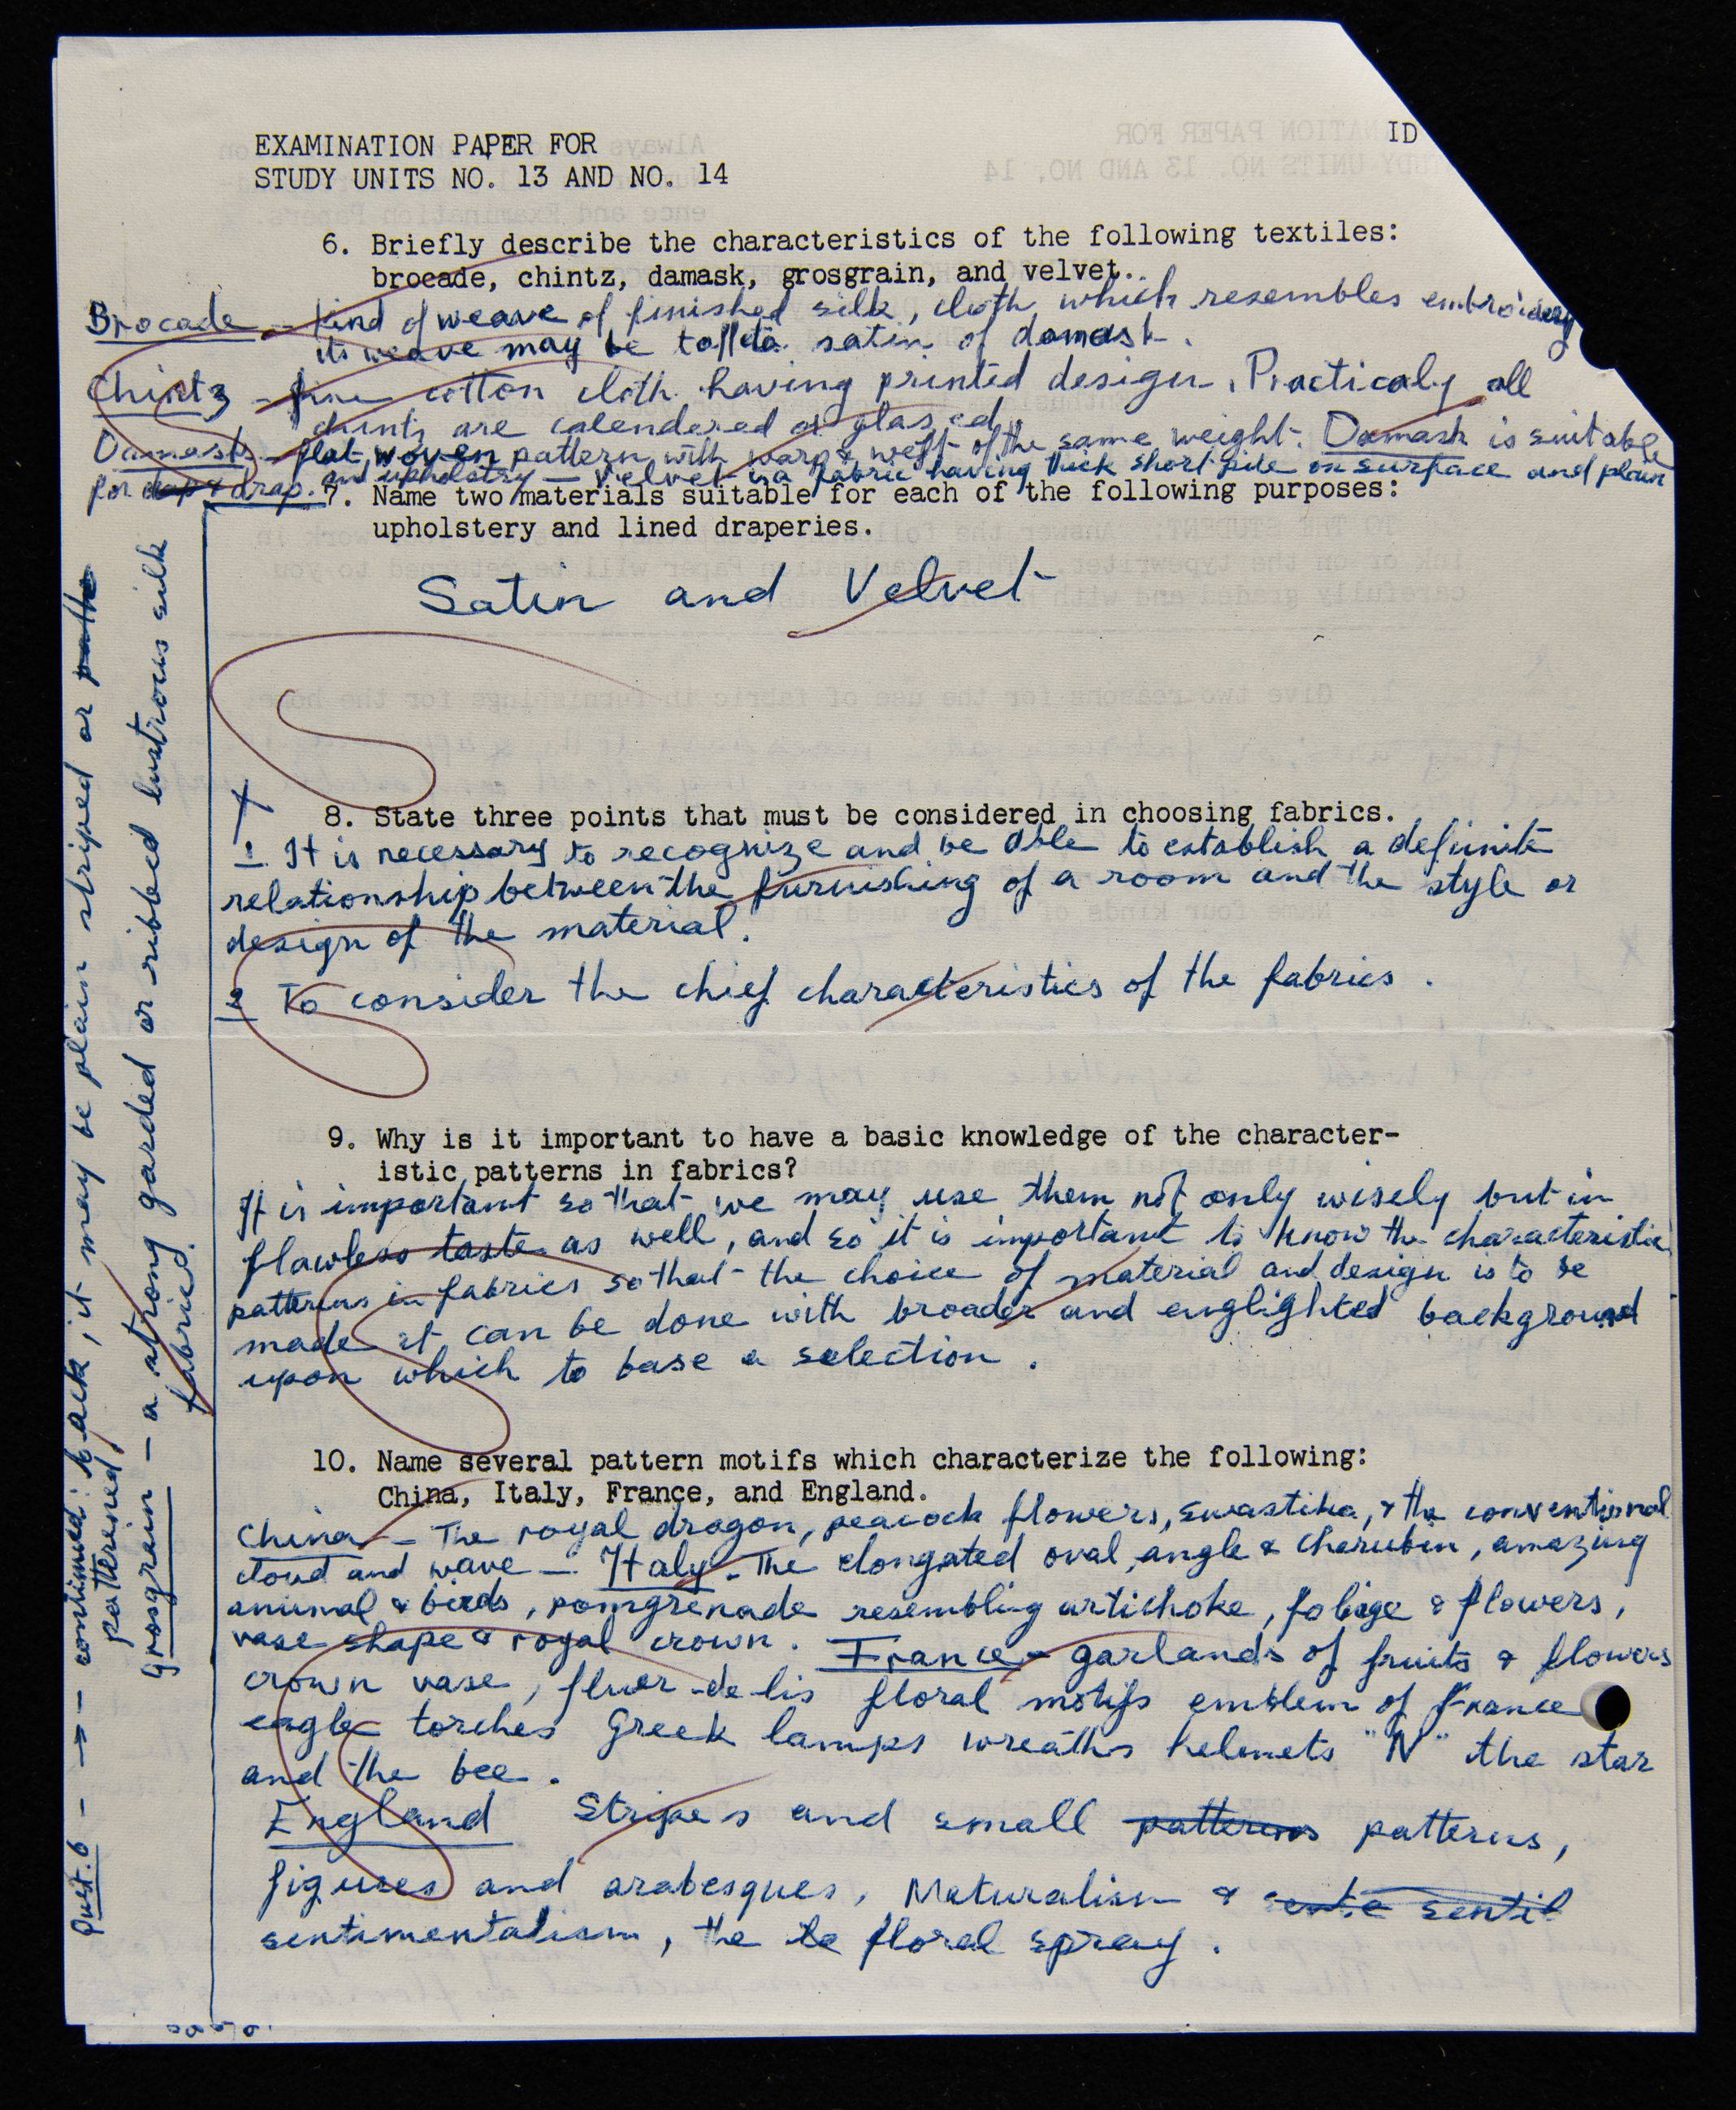 EXAMINATION PAPER FOR
STUDY UNITS NO. 13 AND NO. 14
ID
6. Briefly describe the characteristics of the following textiles:
brocade, chintz, damask, grosgrain, and velvet.
Brocade - kind of weave of finished silk, cloth which resembles embroidery
its weave may be taffeta satin of damask.
Chintz - fine cotton cloth having printed design. Practicaly all
chintz are calendered or glazed
Damask - flat woven pattern with warp & weft of the same weight. Damask is suitable
for dap & drap. and upholstry - Velvet is a fabric having thick short pile on surface and plain
7. Name two materials suitable for each of the following purposes:
upholstery and lined draperies.
Satin and Velvet
8. State three points that must be considered in choosing fabrics.
1. It is necessary to recognize and be able to establish a definite
relationship between the furnishing of a room and the style or
design of the material.
2 To consider the chief characteristics of the fabrics.
9. Why is it important to have a basic knowledge of the character-
istic patterns in fabrics?
It is important so that we may use them not only wisely but in
flawless taste as well, and so it is important to know the characteristic
patterns in fabrics so that the choice of material and design is to be
made it can be done with broader and englighted background
upon which to base a selection.
10. Name several pattern motifs which characterize the following:
China, Italy, France, and England.
China - The royal dragon, peacock flowers, swastika, & the conventional
cloud and wave - Italy - The elongated oval, angle & cherubin, amazing
animal & birds, pomgrenade resembling artichoke, foliage & flowers,
vase shape & royal crown. France - garlands of fruits & flowers
crown vase, fluer-de-lis floral motifs emblem of France
eagle torches Greek lamps wreaths helmets "N" the star
and the bee.
England Stripes and small patterns patterns,
figures and arabesques, Naturalism & sentil
sentimentalism, the floral spray.
Quest. 6 - → - continued: back, it may be plain striped or patte
patterened,
grosgrain - a strong garded or ribbed lustrous silk
fabric.